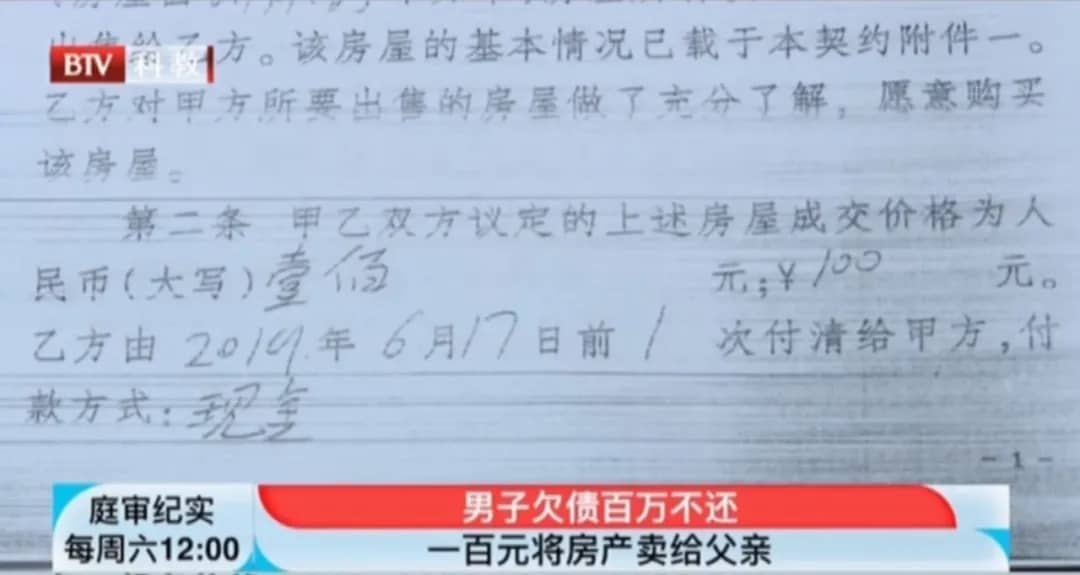 出售给乙方。该房屋的基本情况已载于本契约附件一。
BTV 科教
乙方对甲方所要出售的房屋做了充分了解，愿意购买
该房屋。
第二条 甲乙双方议定的上述房屋成交价格为人
民币(大写)壹佰 元;¥100 元。
乙方由 2019年 6月17日前 1 次付清给甲方,付
款方式:现金
-1-
庭审纪实
每周六12:00
男子欠债百万不还
一百元将房产卖给父亲